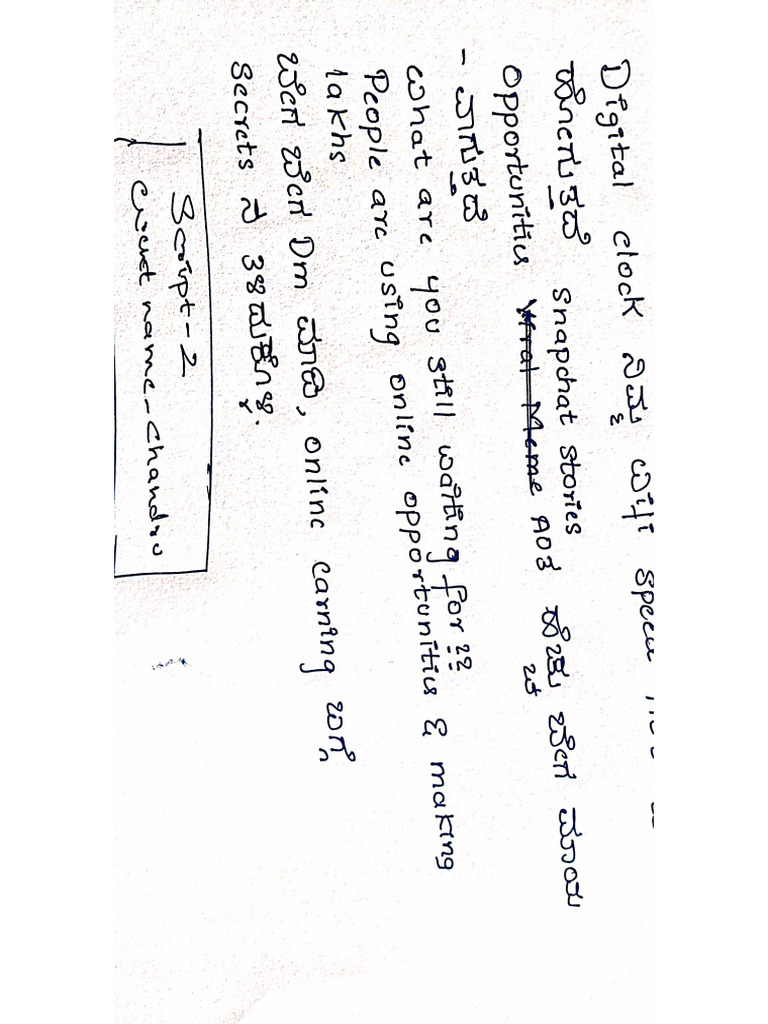 Digital clock ನಿಮ್ಮ ವೈಫೈ speed
ಹೋಗುತ್ತದೆ snapchat stories
opportunities Viral Meme ಗಿಂತ ಹೆಚ್ಚು ಬೇಗ ಮಾಯ
- ವಾಗುತ್ತವೆ
what are you still waiting for ??
People are using online opportunities & making
lakhs
ಬೇಗ ಬೇಗ Dm ಮಾಡಿ, online earning ಬಗ್ಗೆ
secrets ನ ತಿಳಿದುಕೊಳ್ಳಿ.
Script-2
name - Chandru